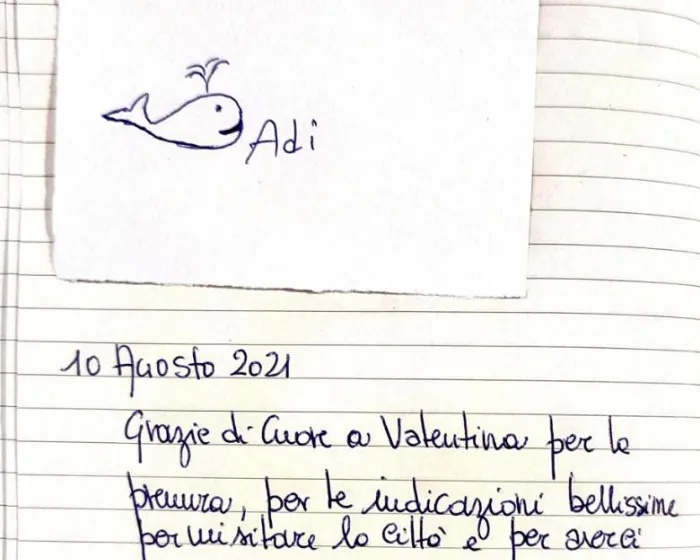 Adi
10 Agosto 2021
Grazie di Cuore a Valentina per la
premura, per le indicazioni bellissime
per visitare la città e per averci